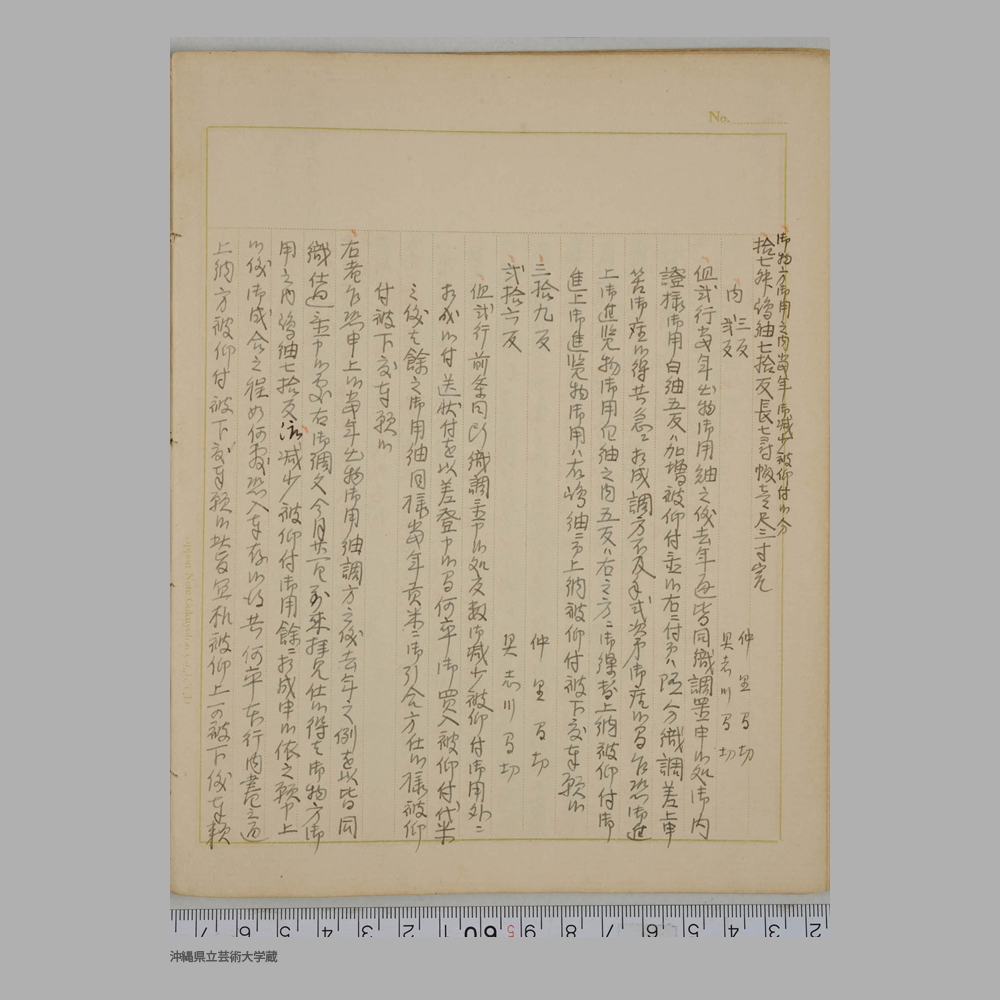 No.
御物方御用之内当年御減少被仰付候分
拾七舛嶋紬七拾反長七尋幅壱尺三寸宛
内 三反 仲里間切
弐反 具志川間切
但弐行当年出物御用紬之儀去年通皆同織調置申候処御内
證様御用白紬五反ハ加増被仰付置候右ニ付而ハ随分織調差上申
筈御座候得共急ニ相成調方不及手次第御座候間乍恐御進
上御進覧物御用色紬之内五反ハ右之方ニ御繰替上納被仰付御
進上御進覧物御用ハ右嶋紬ニ而上納被仰付被下度奉願候
三拾九反 仲里間切
弐拾六反 具志川間切
但弐行前条同断織調置申候処反数御減少被仰付御用外ニ
相成候付送状付を以差登申候間何卒御買入被仰付代米
之儀は余之御用紬同様当年貢米ニ御引合方仕候様被仰
付被下度奉願候
右者乍恐申上候当年出物御用紬調方之儀去年之例を以皆同
織仕廻置申候処右御調文今月廿一日到来拝見仕候得は御物方御
用之内嶋紬七拾反減少被仰付御用余ニ相成申候依之願申上
候儀御成合之程如何敷恐入奉存候得共何卒本行内書之通
上納方被仰付被下度奉願候此旨宜敷被仰上可被下儀奉頼
7 6 5 4 3 2 1 60 59 8 7 6 5 4 3 2
沖縄県立芸術大学蔵